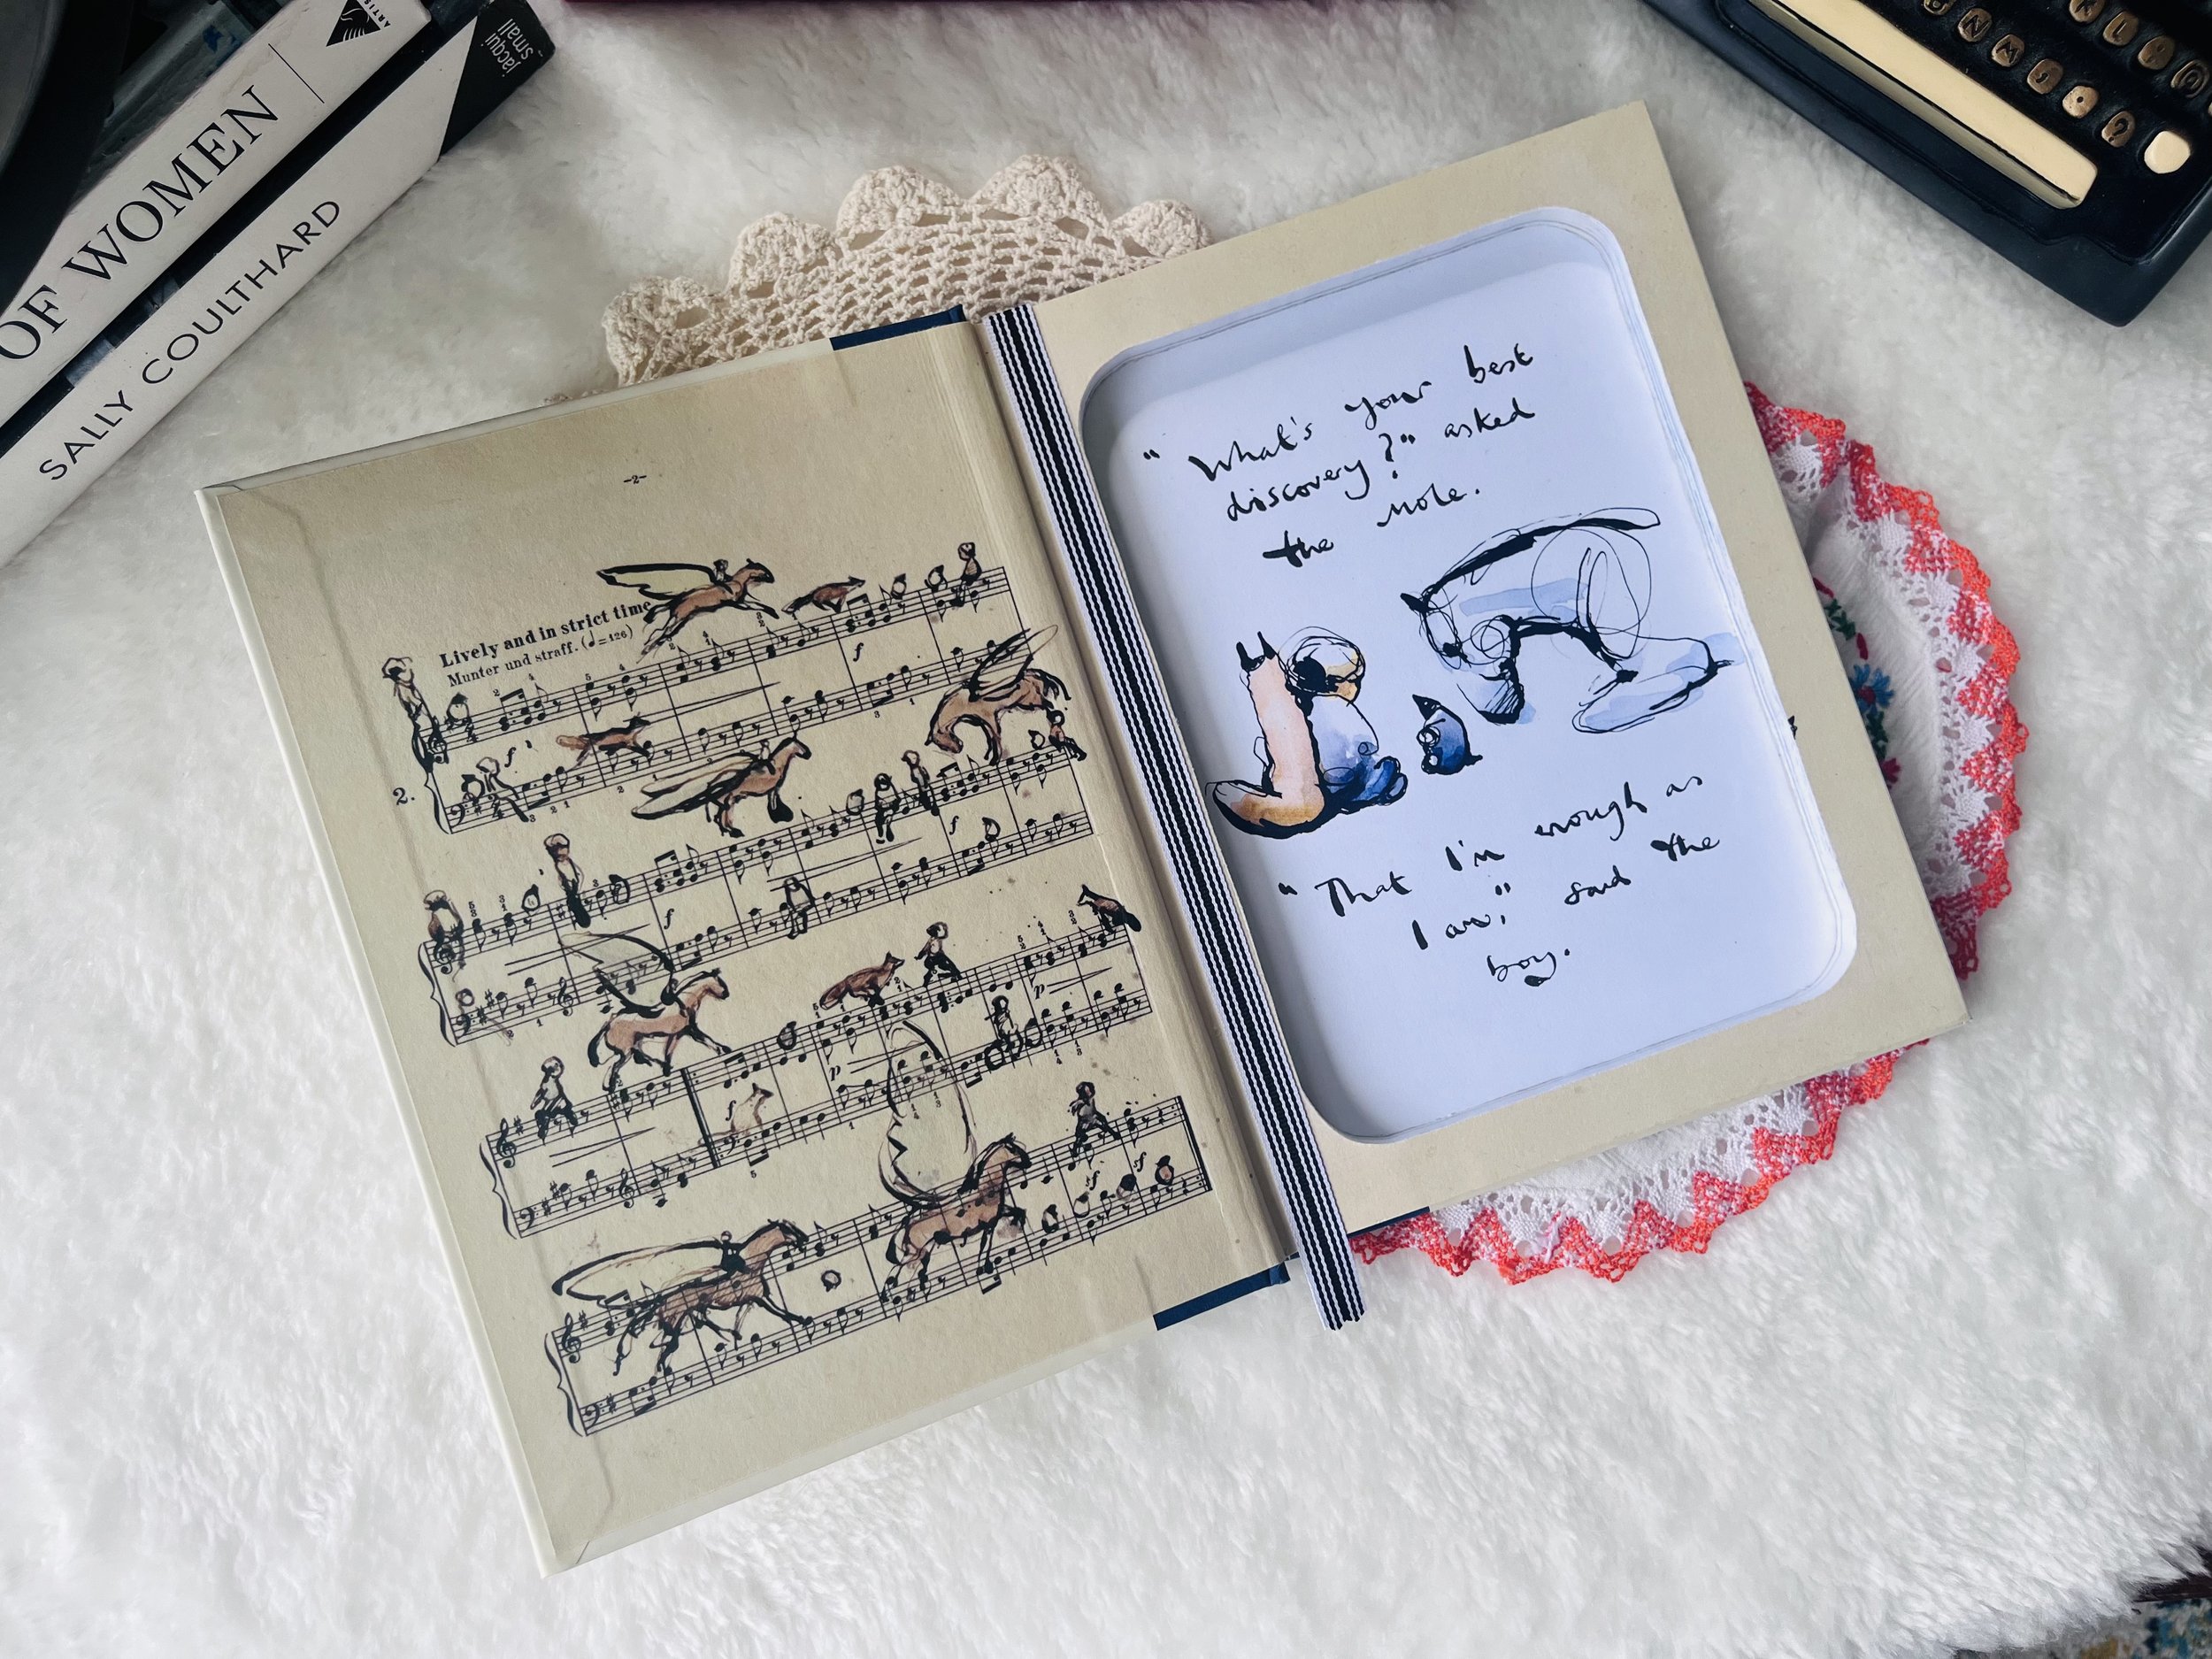 OF WOMEN
ARTIS
SALLY COULTHARD
jacqui
small
-2-
Lively and in strict time
Munter und straff. (♩=126)
2.
"What's your best
discovery?" asked
the mole.
"That I'm enough as
I am," said the
boy.